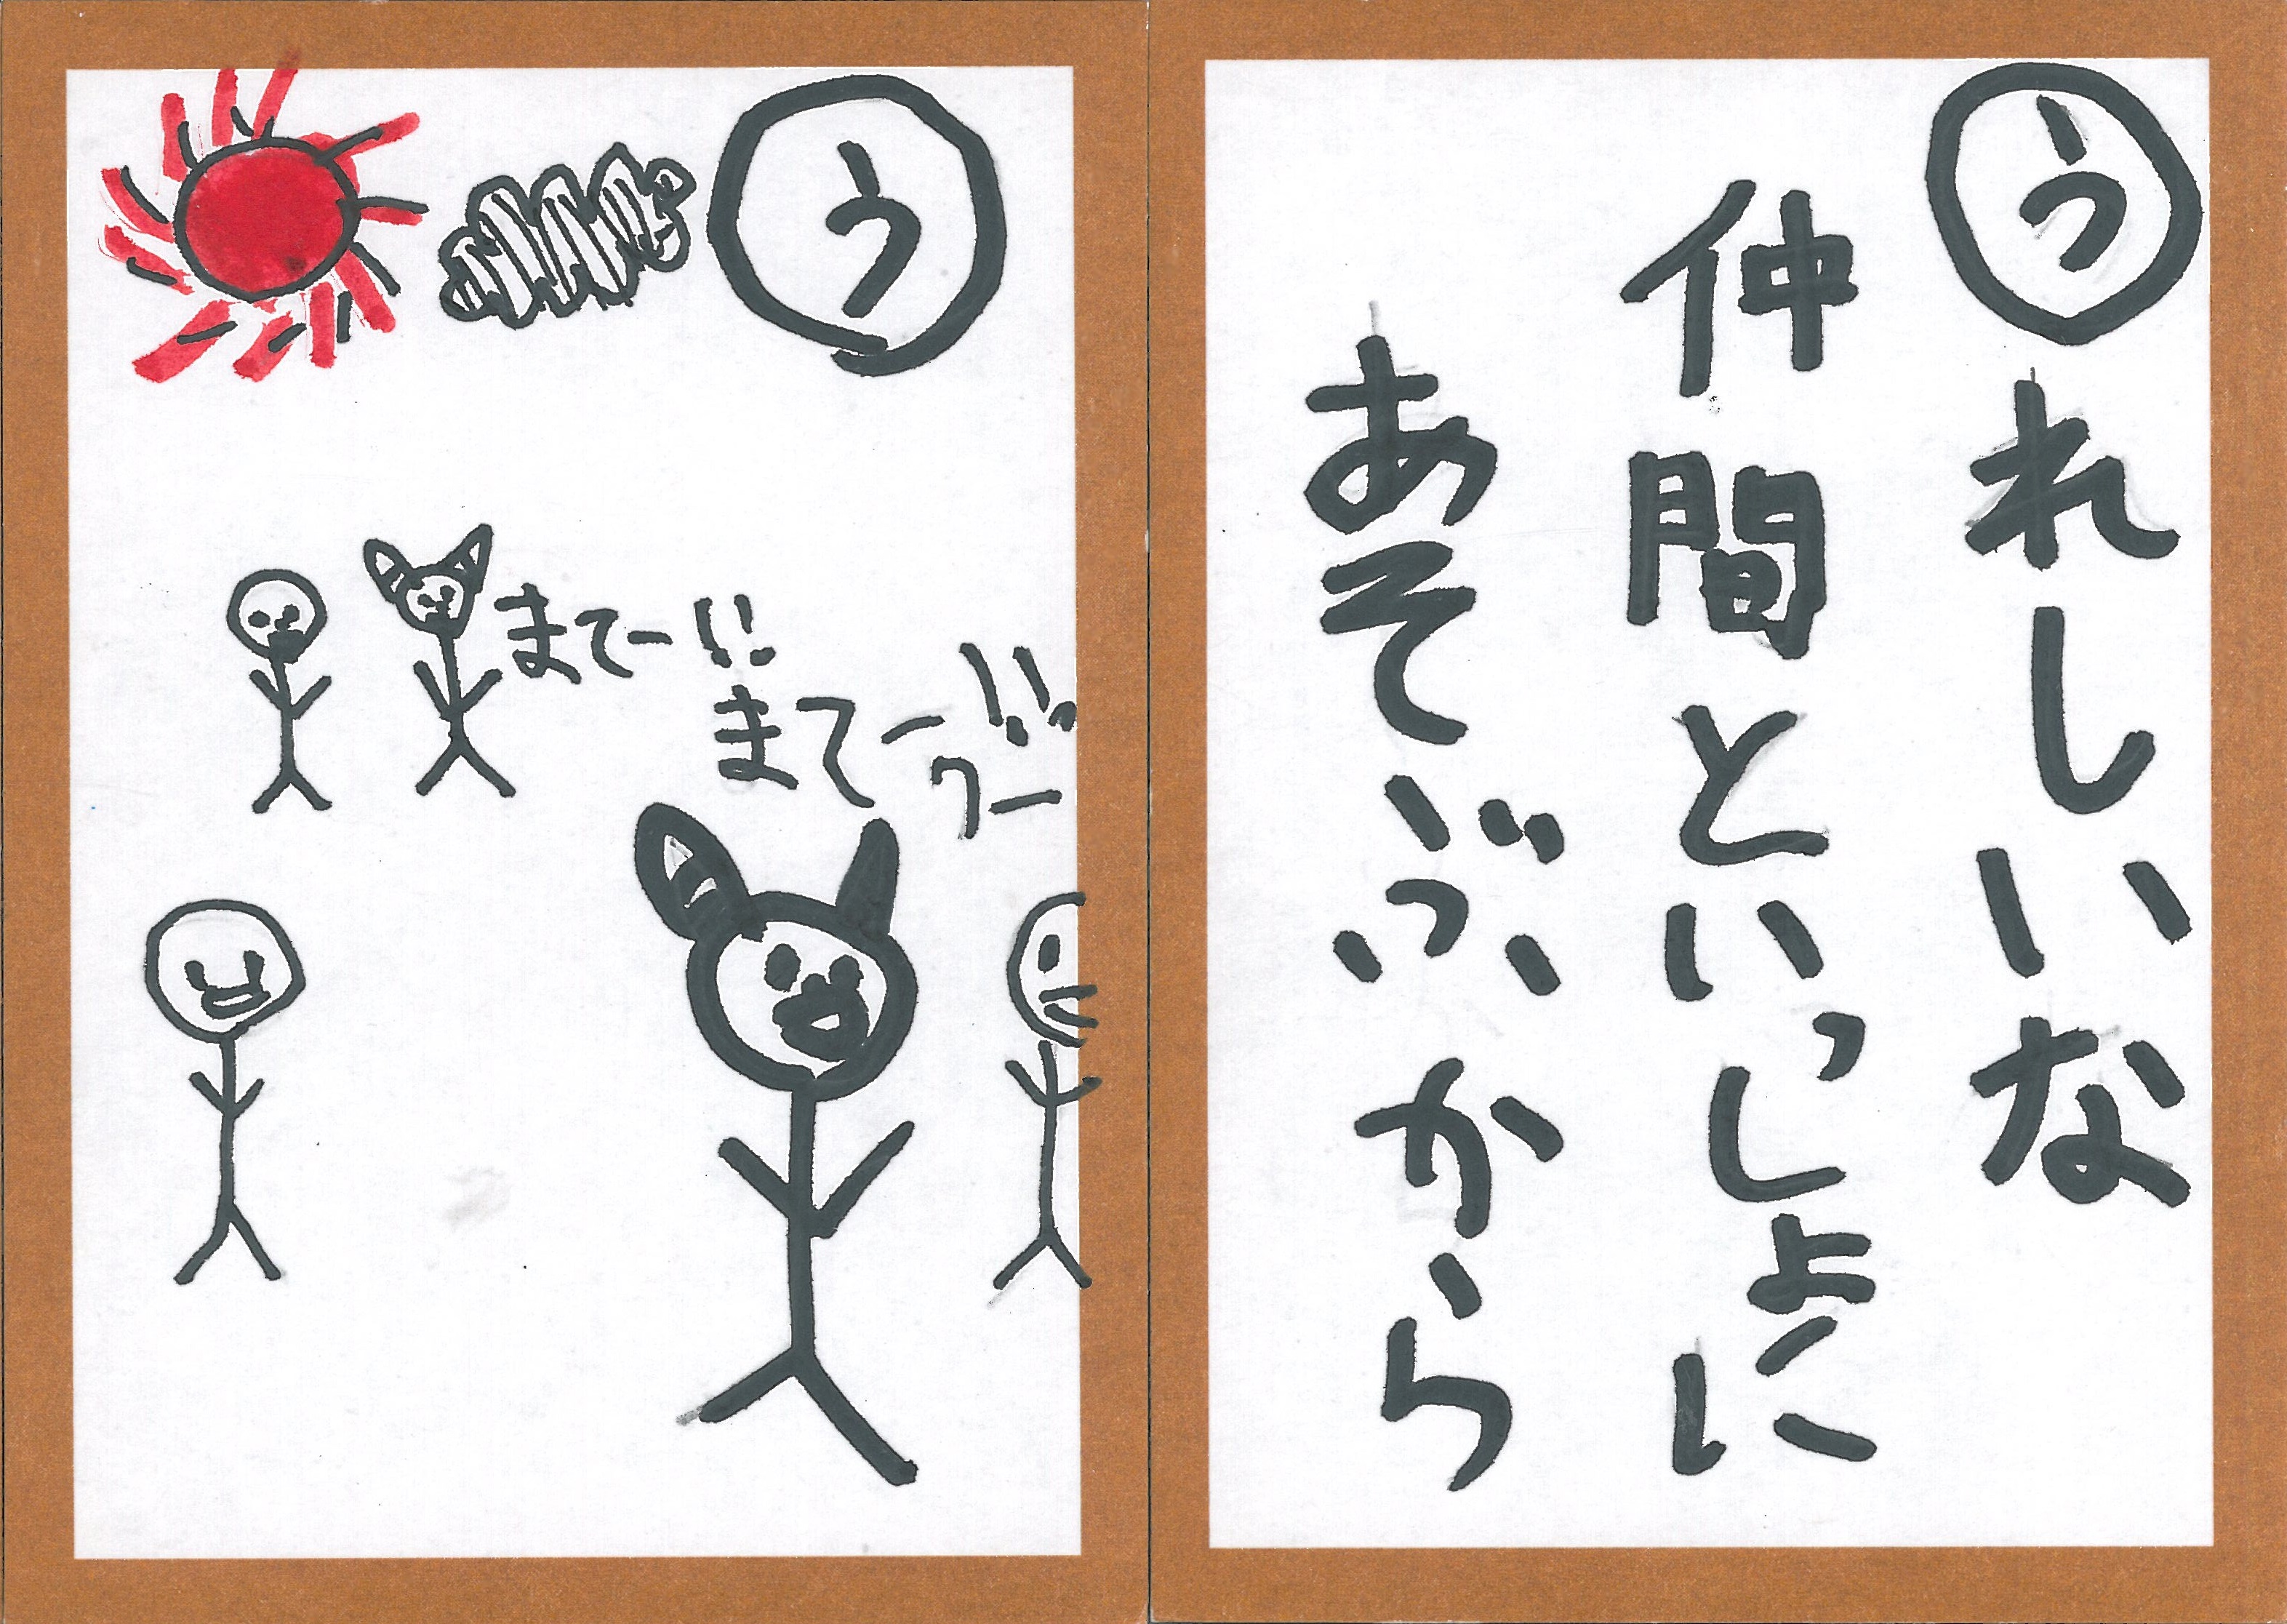 う
まてー!!
まてー!!
ワー
うれしいな
仲間といっしょに
あそぶから